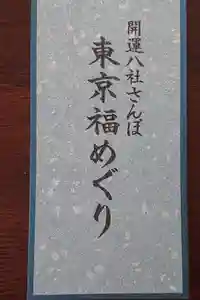 開運八社さんぽ
東京福めぐり